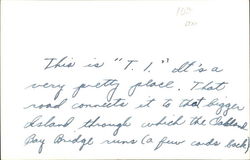 This is "T. I." It's a
very pretty place. That
road connects it to that bigger
Island through which the Oakland
Bay Bridge runs (a few cards back)